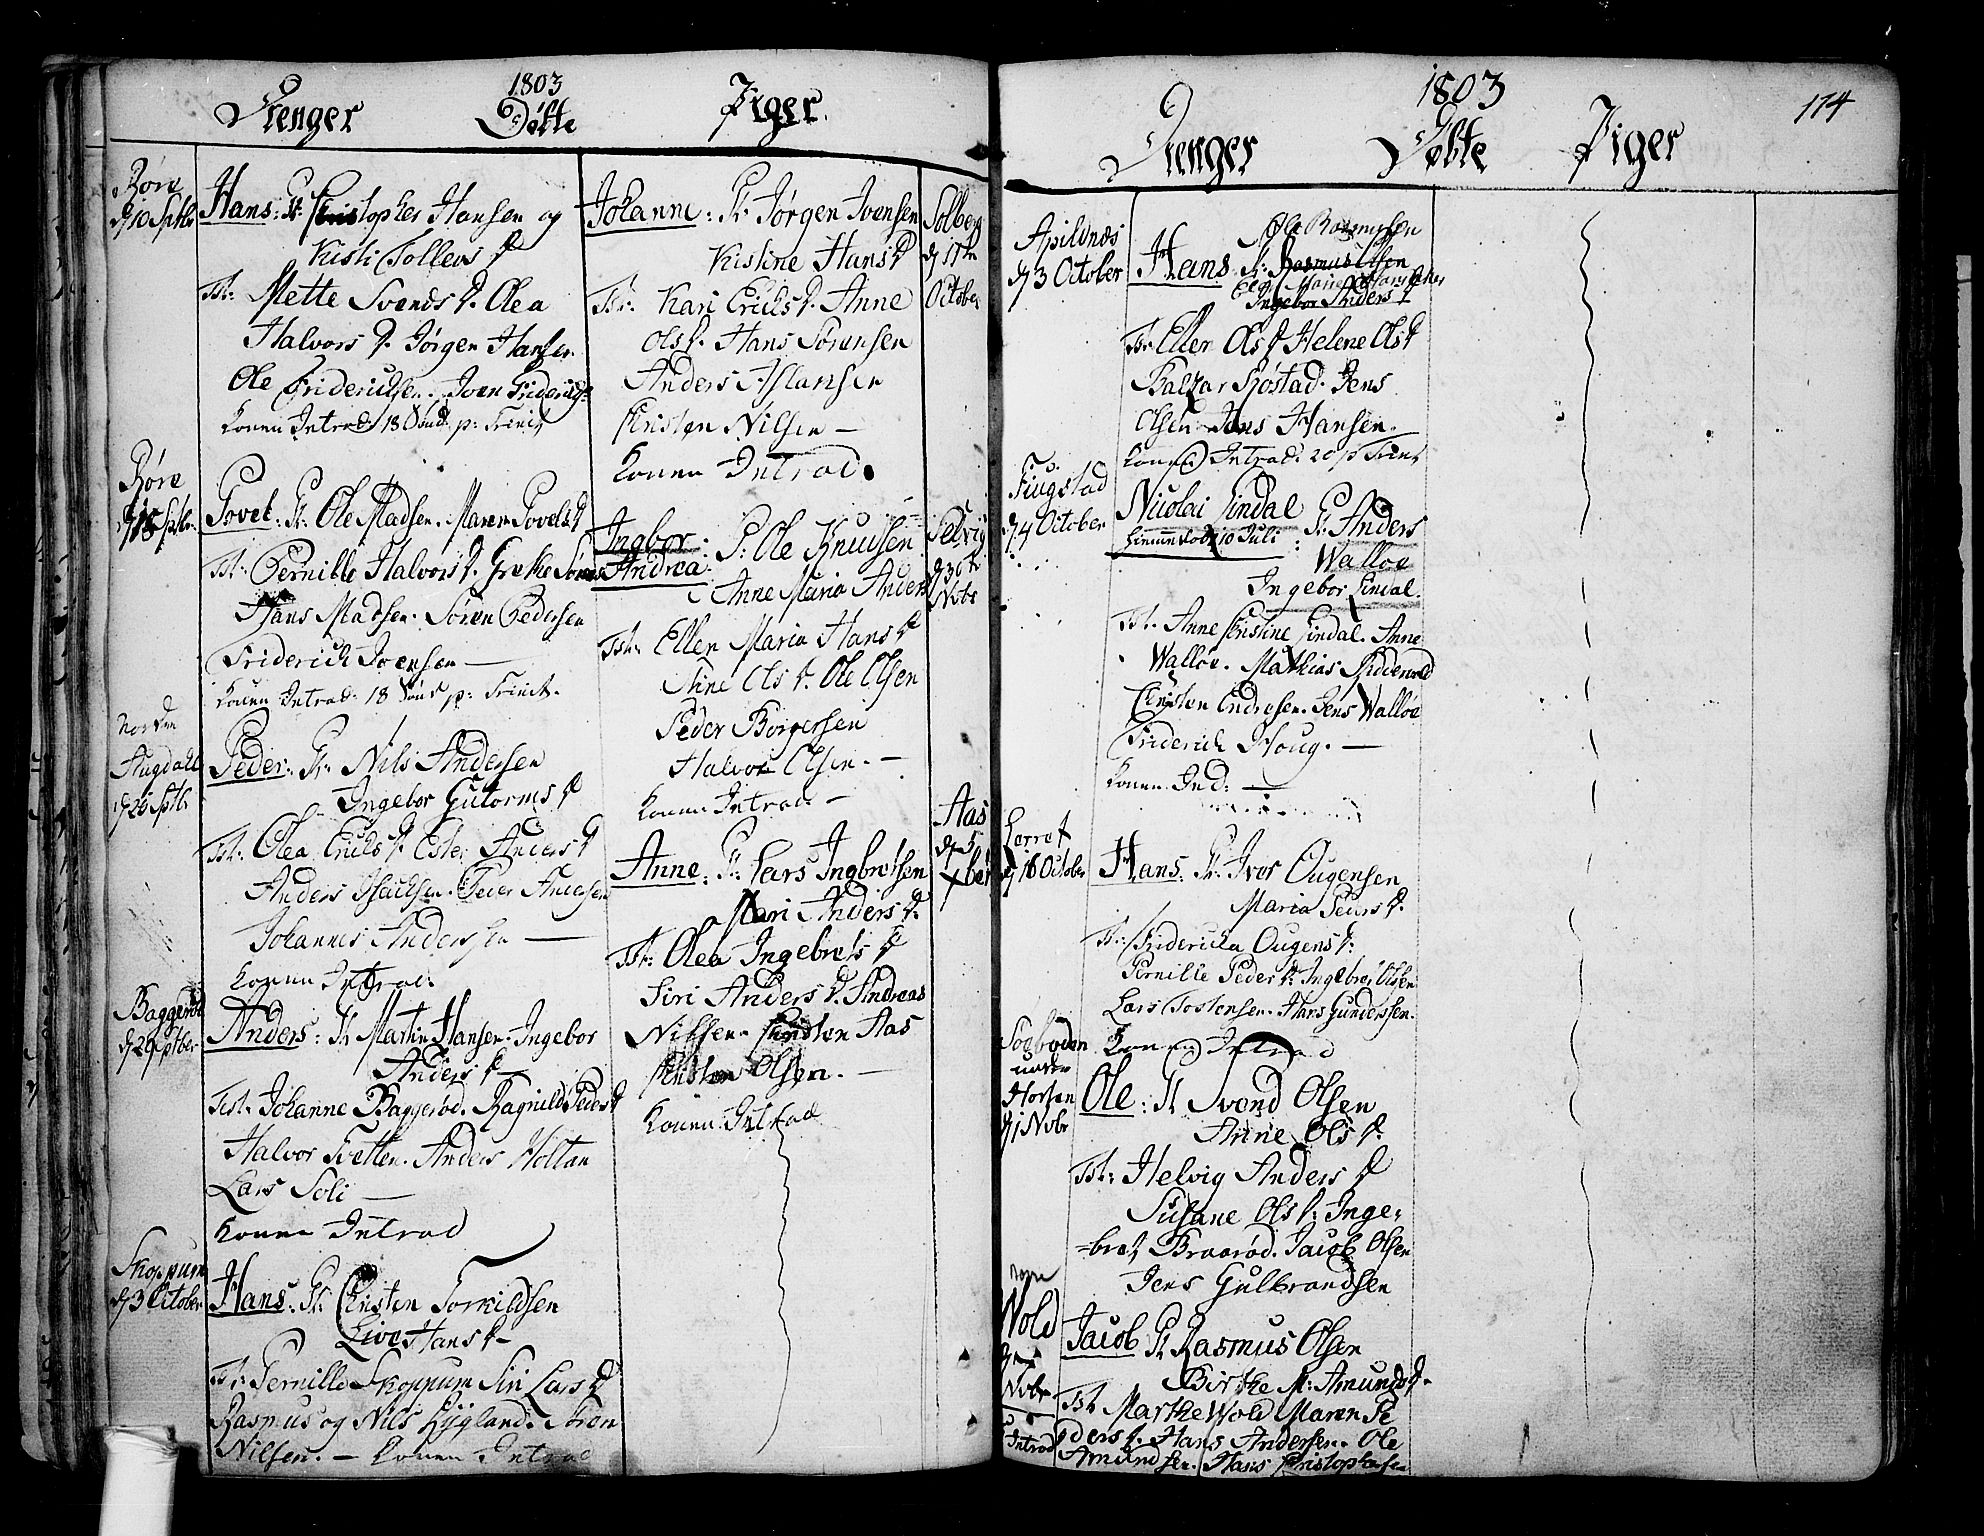 1803
Drenger Døbte Piger
Røre
d 10 Sptbr
Hans: Fr: Christopher Hansen og
Kisti Tollevs D
Tst: Mette Svends D. Olea
Halvors D. Jørgen Hansen
Ole Friderichsen. Joen Friderichs
Konen Introd: 18 Sønd p: Trinit
Røre
d 18 Sptbr
Povel: Fr: Ole Madsen. Maren Povels D
Tst: Pernille Halvors D. Grethe Sørens
Hans Madsen. Søren Pedersen
Friderich Joensen —
Konen Introd: 18 Sønd p: Trinit.
Norden
Augdahl
d 26 Sptbr
Peder: Fr: Nils Andersen
Ingebor Gutorms D
Tst: Olea Erichs D. Ester Anders D
Anders Isachsen. Peder Andersen
Johannes Andersen —
Konen Introd.
Baggerød
d 29 Sptber
Anders: Fr Martin Hansen. Ingebor
Anders D —
Test. Johanne Baggerød. Ragnild Peders D
Halvor Tvetten. Anders Holtan
Lars Soli —
Konen Introd
Skoppum
d 3 October
Hans: Fr: Christen Torkildsen
Live Hans D —
Tst: Pernille Skoppum Siri Lars D
Rasmus og Nils Rygland. Søren
Nilsen. — Konen Introd
Johanne: Fr: Jørgen Ivensen
Kistine Hans D
Tst: Kari Erichs D. Anne
Ols D. Hans Sørensen
Anders Aslansen
Christen Nilsen —
Konen Introd.
Solberg
d 11te
October
Ingbor
Andrea: F: Ole Knudsen
Anne Maria Anders
Tst: Ellen Maria Hans D
Stine Ols D. Ole Olsen
Peder Borgersen
Halvor Olsen. —
Konen Introd —
Selvig
d 30te
Novbr
Anne: Fr: Lars Ingbretsen
Mari Anders D.
Tst: Olea Ingebrets D
Siri Anders D. Andreas
Nilsen. Christen Aas
Christen Olsen. —
Konen Introd
Aas
d 5
Xber
1803
174
Drenger Døbte Piger
Apildnæs
d 3 October
Ole Rasmussen
Hans Fr: Rasmus Olsen
Ellen Marie Hans Datter
Ingebor Anders D
Tst: Ellen Ols D Helene Ols D
Baltzar Rostad. Jens
Olsen Jens Hansen.
Konen Introd: 20 p Trinit
Fiugstad
d 4 October
Nicolai Lindal Fr: Anders
hiemmedøbt 10 Juli: Walløe
Ingebor Lindal.
Tst. Anne Christine Lindal. Anne
Walløe. Mathias Ridderwold
Christen Endresen. Jens Walløe
Friderich Houg. —
Konen Ind: —
Lorret
d 16 October
Hans. Fr: Iver Ougensen
Maria Peders D.
Tst: Fridericha Ougens D:
Pernille Peders D: Ingebret Olsen
Lars Tostensen. Hans Gundersen.
Konen Introd
Soeboden
under
Horten
d 1 Novbr
Ole: Fr Svend Olsen
Anne Ols D.
Tst: Helvig Anders D
Susane Ols D: Inge-
=bret Braarød. Jacob Olsen
Jens Gulbrandsen
Wold
Novbr
Introd
Jacob Fr Rasmus Olsen
Birthe M: Amunds D.
Tst Marthe Wold Maren Pe
ders D. Hans Andersen. Ole
Amundsen. Hans Christophersen